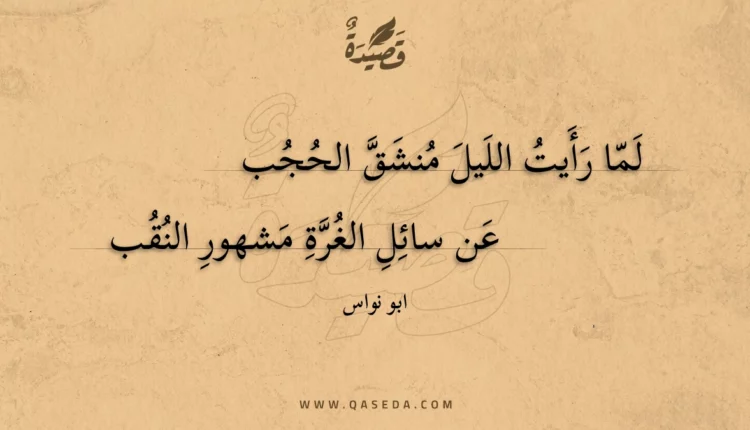 قَصِيدَةٌ
لَمّا رَأَيتُ اللَيلَ مُنشَقَّ الحُجُب
عَن سائِلِ الغُرَّةِ مَشهورِ النُقُب
ابو نواس
WWW.QASEDA.COM